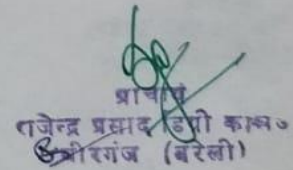 प्राचार्य
राजेन्द्र प्रसाद डिग्री काल०
मीरगंज (बरेली)